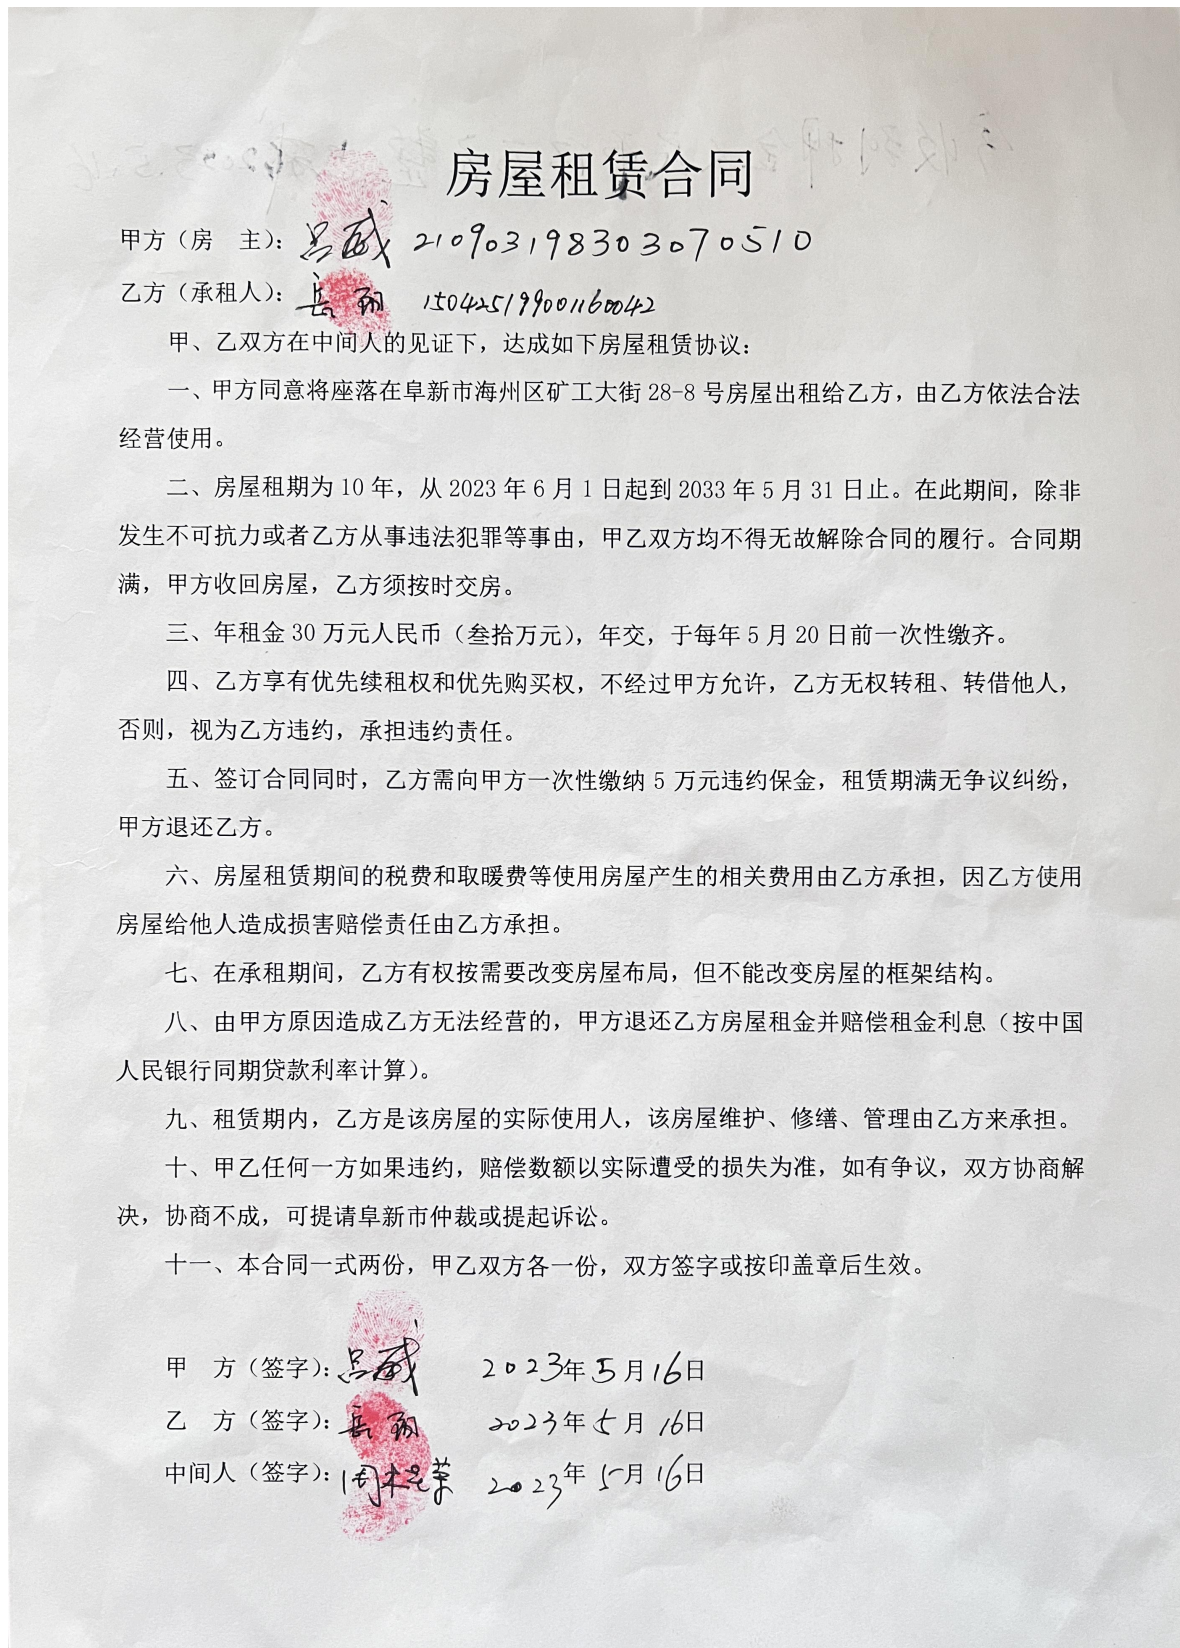 房屋租赁合同
甲方（房　主）：吕威 210903198303070510
乙方（承租人）：岳 150425199001160042
甲、乙双方在中间人的见证下，达成如下房屋租赁协议：
一、甲方同意将座落在阜新市海州区矿工大街 28-8 号房屋出租给乙方，由乙方依法合法
经营使用。
二、房屋租期为 10 年，从 2023 年 6 月 1 日起到 2033 年 5 月 31 日止。在此期间，除非
发生不可抗力或者乙方从事违法犯罪等事由，甲乙双方均不得无故解除合同的履行。合同期
满，甲方收回房屋，乙方须按时交房。
三、年租金 30 万元人民币（叁拾万元），年交，于每年 5 月 20 日前一次性缴齐。
四、乙方享有优先续租权和优先购买权，不经过甲方允许，乙方无权转租、转借他人，
否则，视为乙方违约，承担违约责任。
五、签订合同同时，乙方需向甲方一次性缴纳 5 万元违约保金，租赁期满无争议纠纷，
甲方退还乙方。
六、房屋租赁期间的税费和取暖费等使用房屋产生的相关费用由乙方承担，因乙方使用
房屋给他人造成损害赔偿责任由乙方承担。
七、在承租期间，乙方有权按需要改变房屋布局，但不能改变房屋的框架结构。
八、由甲方原因造成乙方无法经营的，甲方退还乙方房屋租金并赔偿租金利息（按中国
人民银行同期贷款利率计算）。
九、租赁期内，乙方是该房屋的实际使用人，该房屋维护、修缮、管理由乙方来承担。
十、甲乙任何一方如果违约，赔偿数额以实际遭受的损失为准，如有争议，双方协商解
决，协商不成，可提请阜新市仲裁或提起诉讼。
十一、本合同一式两份，甲乙双方各一份，双方签字或按印盖章后生效。
甲　方（签字）：吕威 2023年5月16日
乙　方（签字）：岳 2023年5月16日
中间人（签字）：周 2023年5月16日